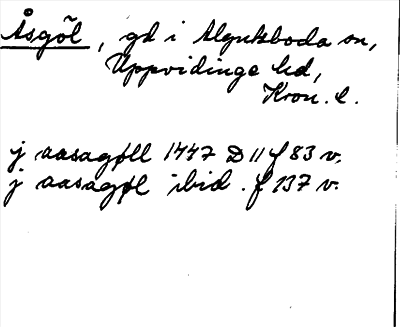 Åsgöl, gd i Algutsboda sn,
Uppvidinge hd,
Kron. l.
j aasagøll 1447 D 11 f 83 v.
j aasagøl ibid. f 137 v.